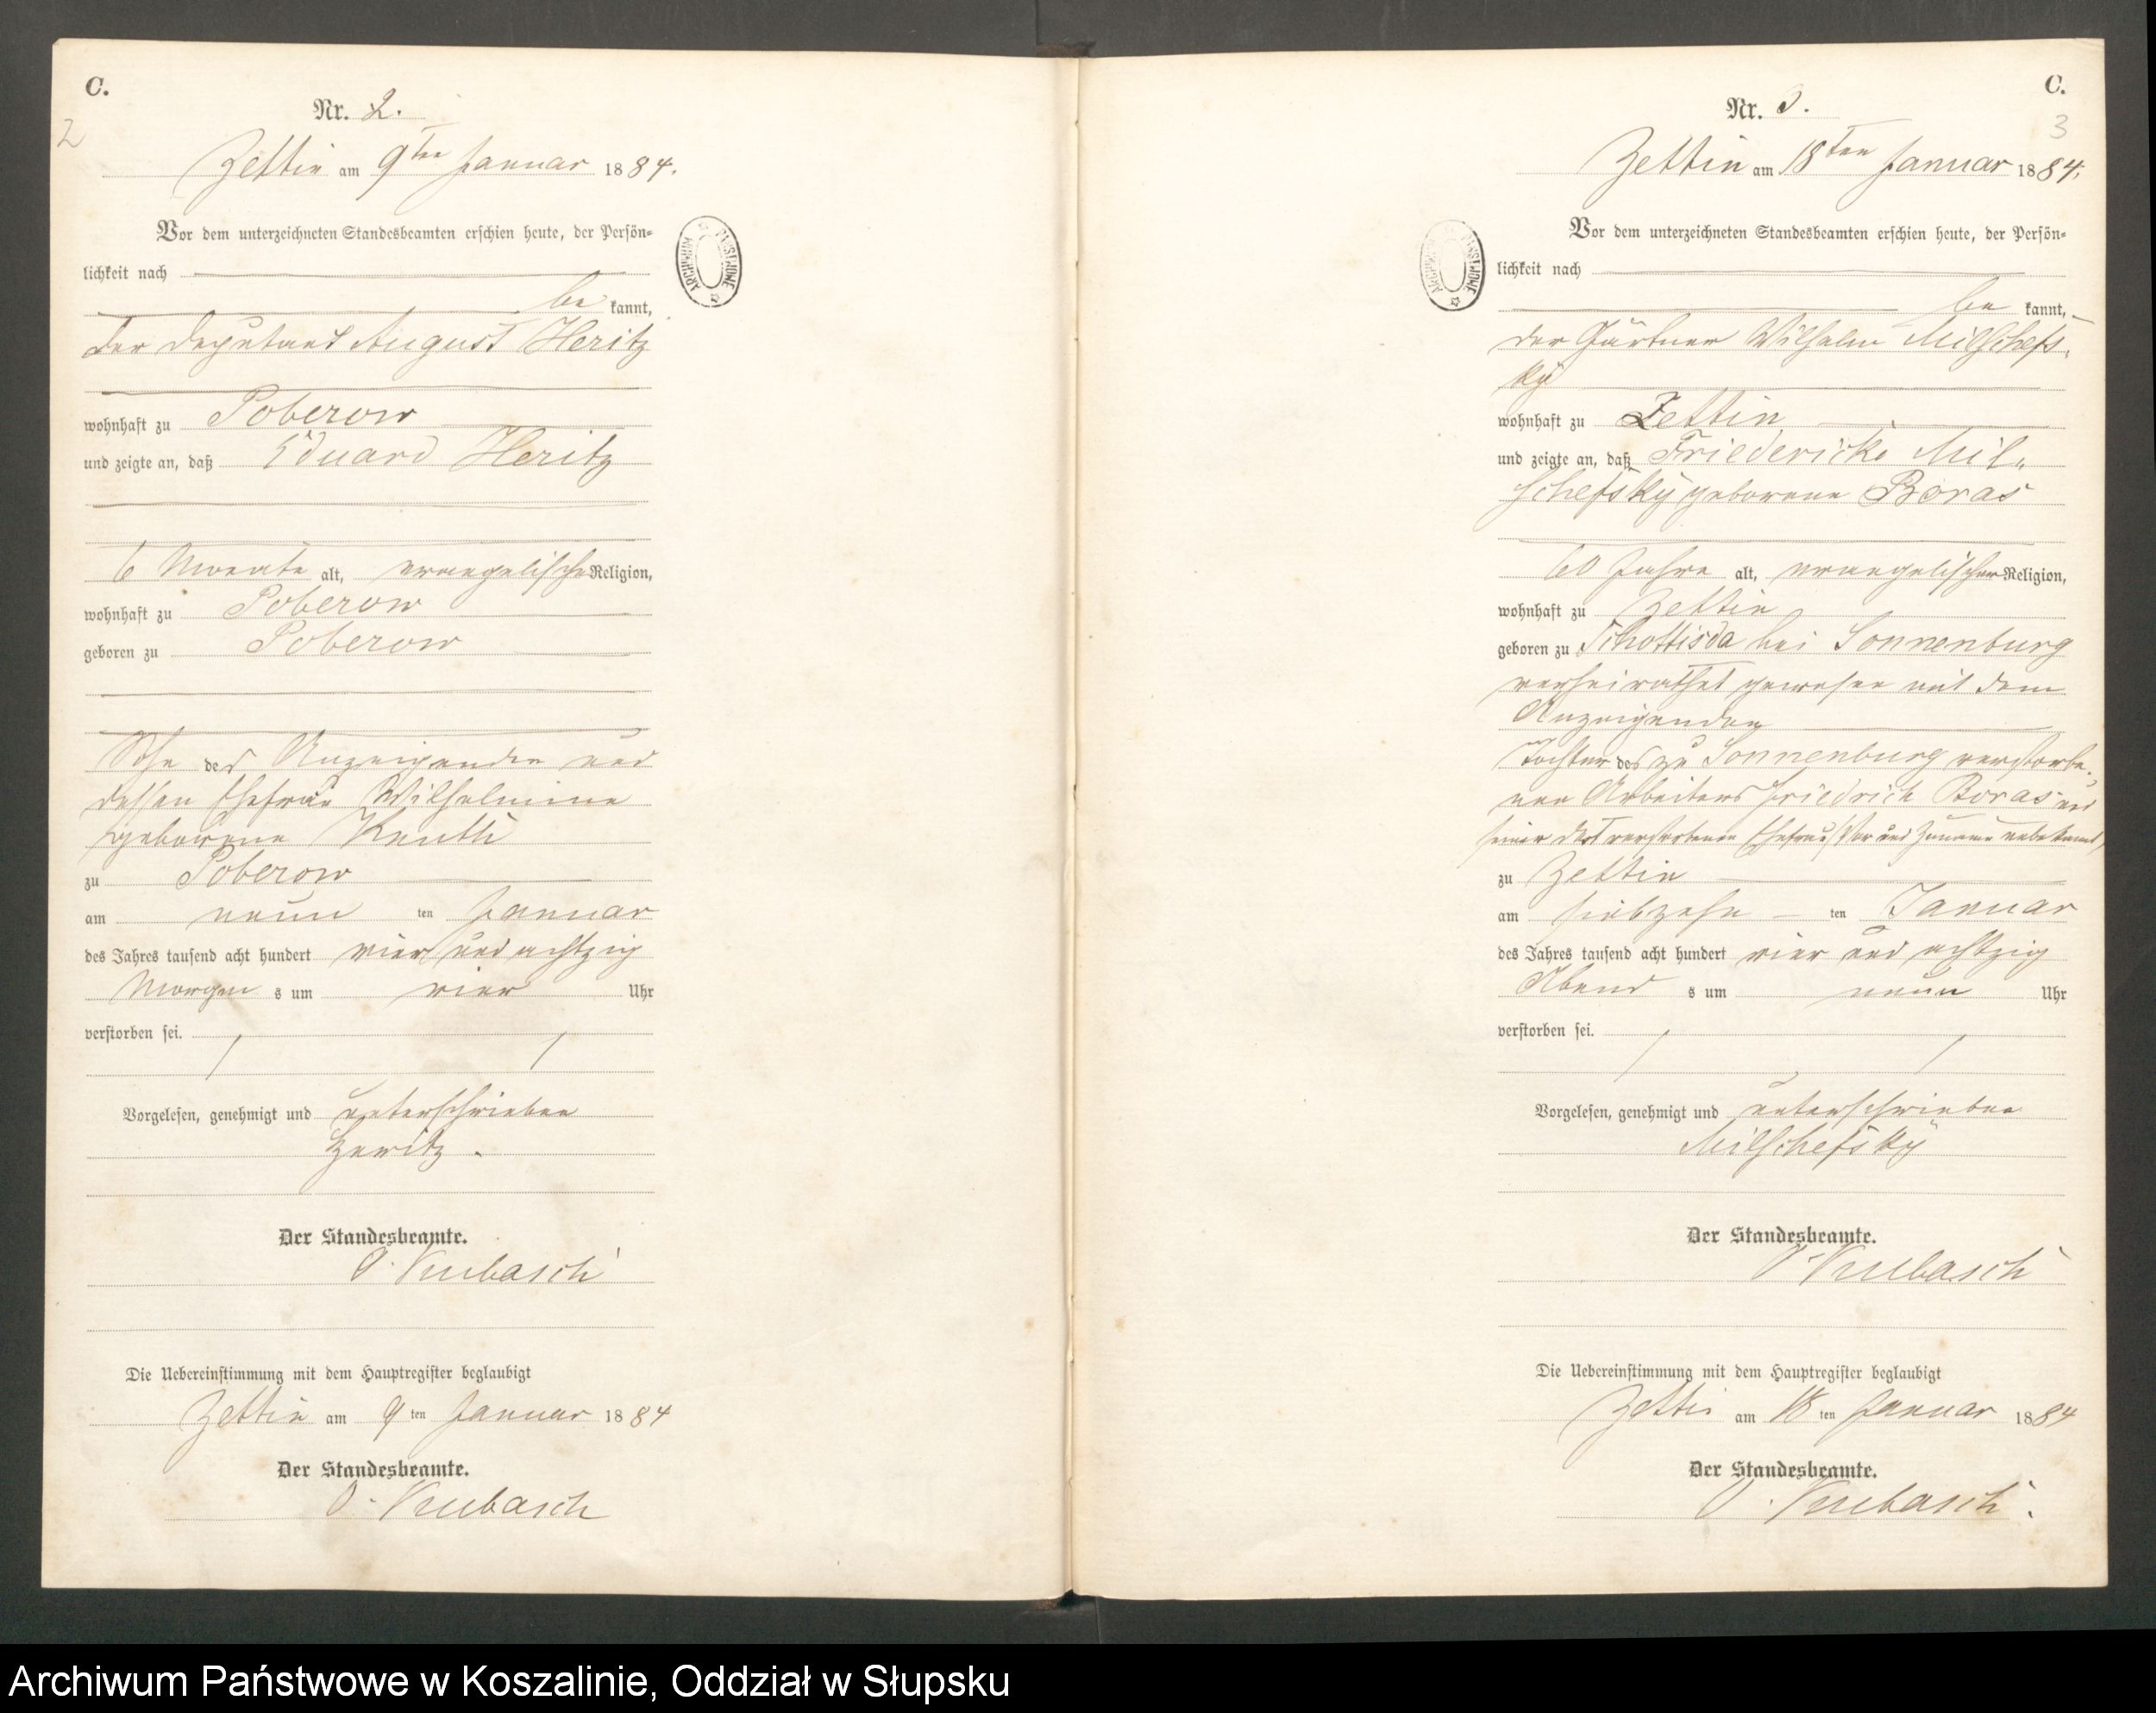 C.
2
Nr. 2.
Zettin am 9ten Januar 1884.
Vor dem unterzeichneten Standesbeamten erschien heute, der Persön-
lichkeit nach
be kannt,
der Deputant August Heritz
wohnhaft zu Poberow
und zeigte an, daß Eduard Heritz
6 Monate alt, evangelischer Religion,
wohnhaft zu Poberow
geboren zu Poberow
Sohn des Anzeigenden und
dessen Ehefrau Wilhelmine
geborene
zu Poberow
am neun ten Januar
des Jahres tausend acht hundert vier und achtzig
Morgen s um vier Uhr
verstorben sei.
Vorgelesen, genehmigt und unterschrieben
Heritz.
Der Standesbeamte.
O. Kubasch
Die Uebereinstimmung mit dem Hauptregister beglaubigt
Zettin am 9 ten Januar 1884
Der Standesbeamte.
O. Kubasch
C.
3
Nr. 3.
Zettin am 18ten Januar 1884.
Vor dem unterzeichneten Standesbeamten erschien heute, der Persön-
lichkeit nach
be kannt,
der Gärtner Wilhelm Milschefs-
ky
wohnhaft zu Zettin
und zeigte an, daß Friedericke Mil-
schefsky geborene Boras
60 Jahre alt, evangelischer Religion,
wohnhaft zu Zettin
geboren zu bei Sonnenburg
verheirathet gewesen mit dem
Anzeigenden
Tochter des zu Sonnenburg verstorbe-
nen Arbeiters Friedrich Boras und
seiner dort verstorbenen Ehefrau (Vor und Zuname unbekannt)
zu Zettin
am siebzehn ten Januar
des Jahres tausend acht hundert vier und achtzig
Abend s um neun Uhr
verstorben sei.
Vorgelesen, genehmigt und unterschrieben
Milschefsky
Der Standesbeamte.
O. Kubasch
Die Uebereinstimmung mit dem Hauptregister beglaubigt
Zettin am 18 ten Januar 1884
Der Standesbeamte.
O. Kubasch.
Archiwum Państwowe w Koszalinie, Oddział w Słupsku